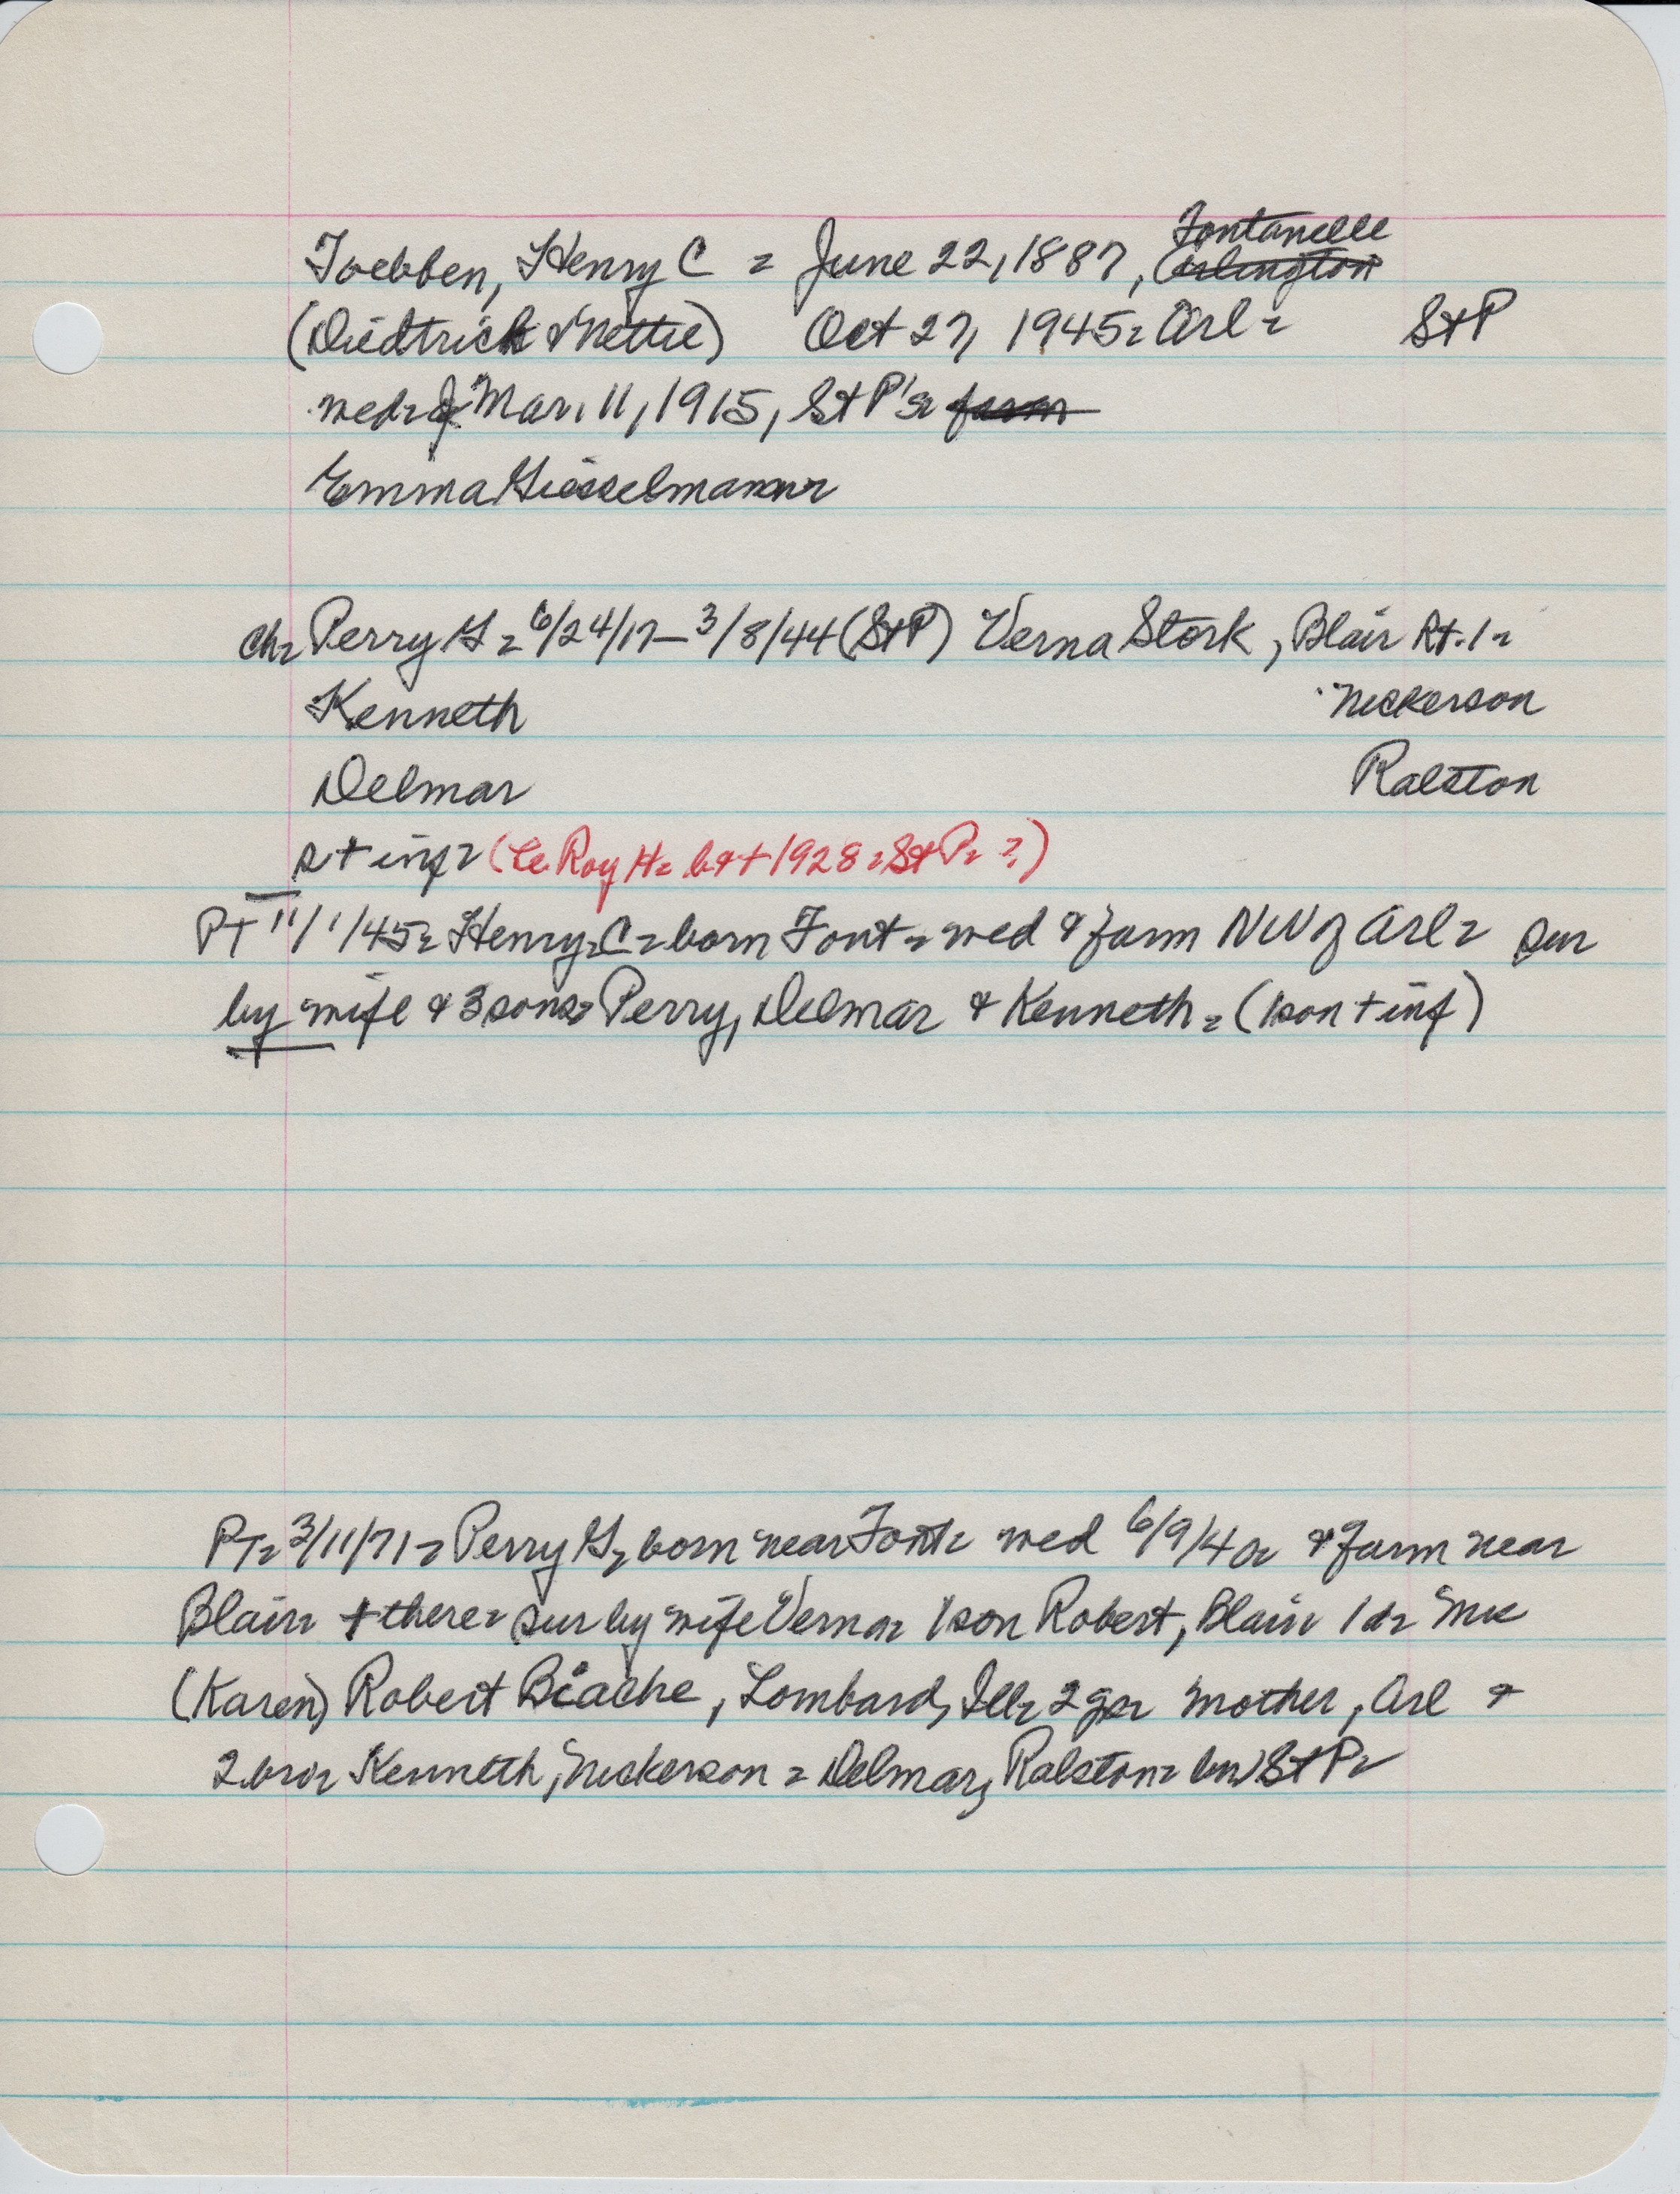 Fontanelle
Toebben, Henry C = June 22, 1887, Arlington
(Diedtrich & Nettie) Oct 27, 1945 = Arl = St P
wed = Mar. 11, 1915, St P's = farm
Emma Giesselmann =
ch = Perry G = 6/24/17 - 3/8/44 (St P) Verna Stork, Blair Rt. 1 =
Kenneth Nickerson
Delmar Ralston
s + inf = (Le Roy H = b & + 1928 = St P = ?)
PT 11/1/45 = Henry = C = born Font = wed & farm NW of Arl = sur
by wife & 3 sons = Perry, Delmar & Kenneth = (1 son + inf)
PT = 3/11/71 = Perry G, born near Font = wed 6/9/40 = & farm near
Blair = + there = sur by wife Verna = 1 son Robert, Blair 1 d =
(Karen) Robert Biache, Lombard, Ill = 2 gr = mother, Arl &
2 bro = Kenneth, Nickerson = Delmar, Ralston = bur St P =